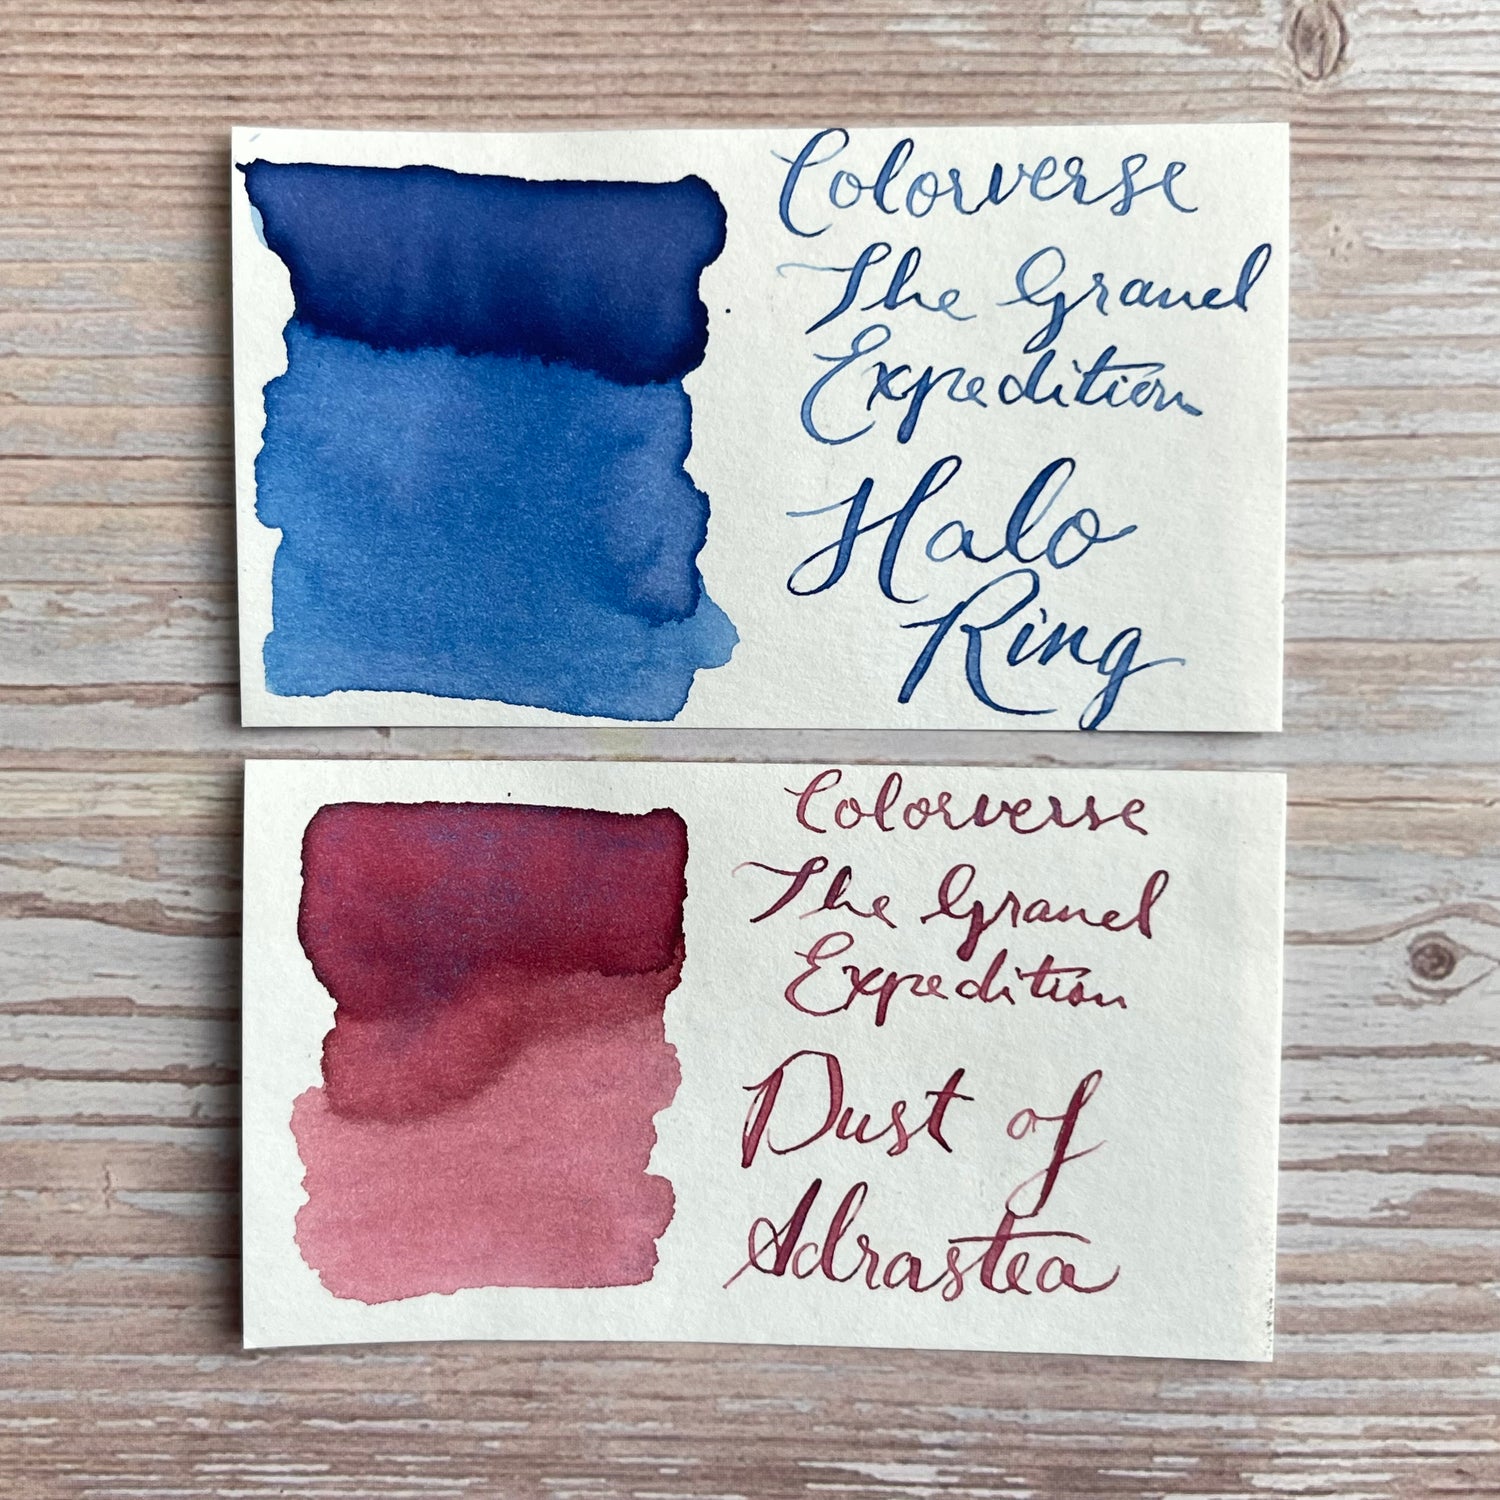 Colorverse
The Grand
Expedition
Halo
Ring
Colorverse
The Grand
Expedition
Dust of
Adrastea